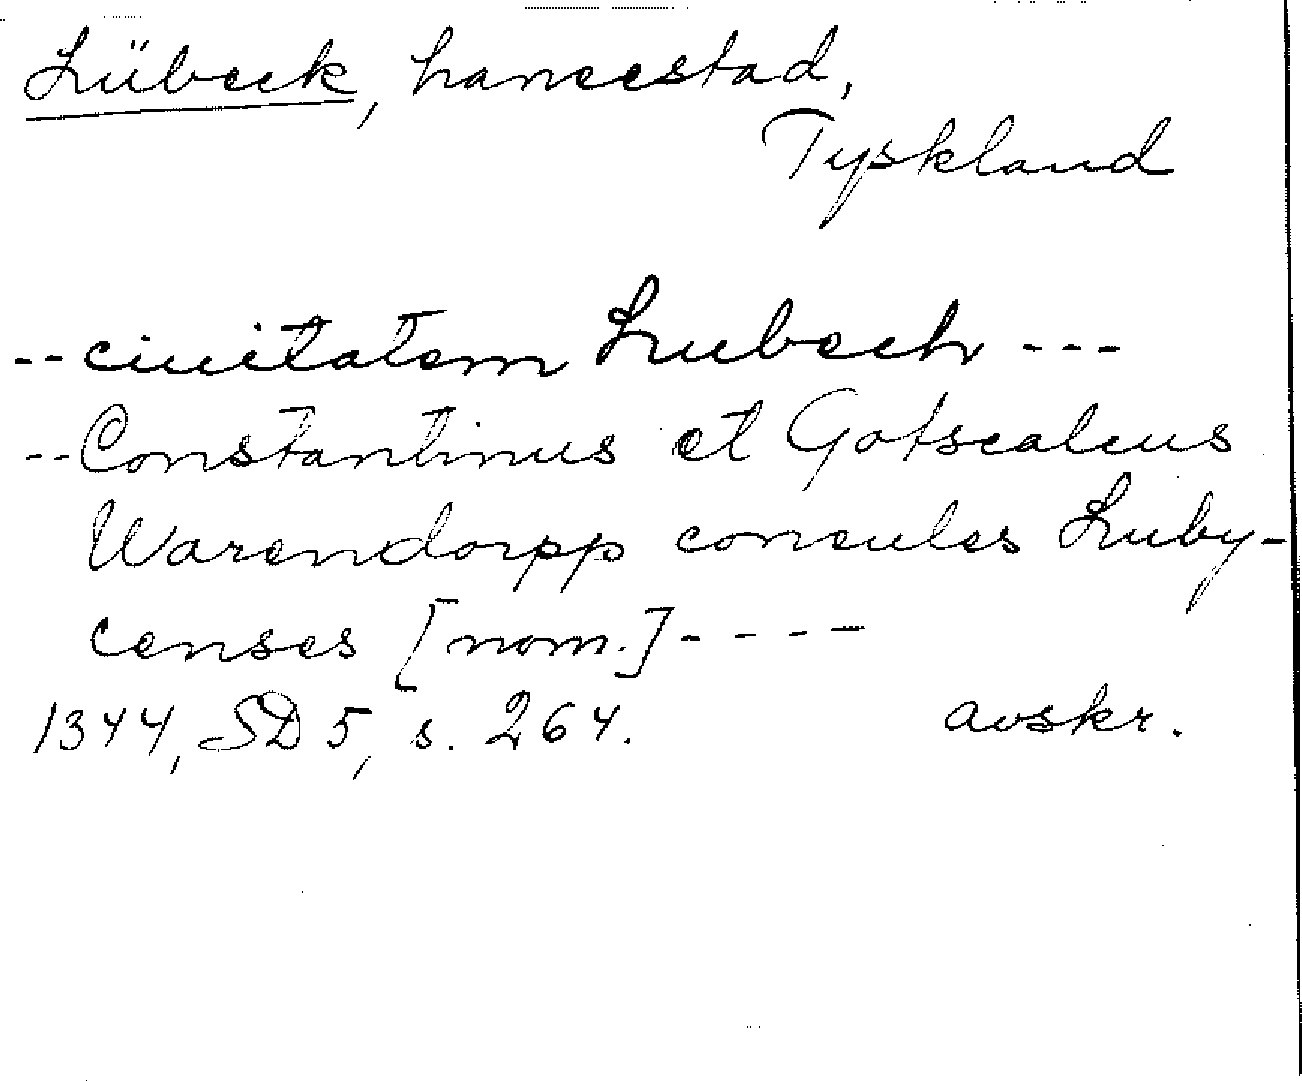 Lübeck, hansestad,
Tyskland
-- ciuitatem Lubech ---
-- Constantinus et Gotscalcus
Warendorpp consules Luby-
censes [nom.] ----
1344, SD 5, s. 264. avskr.